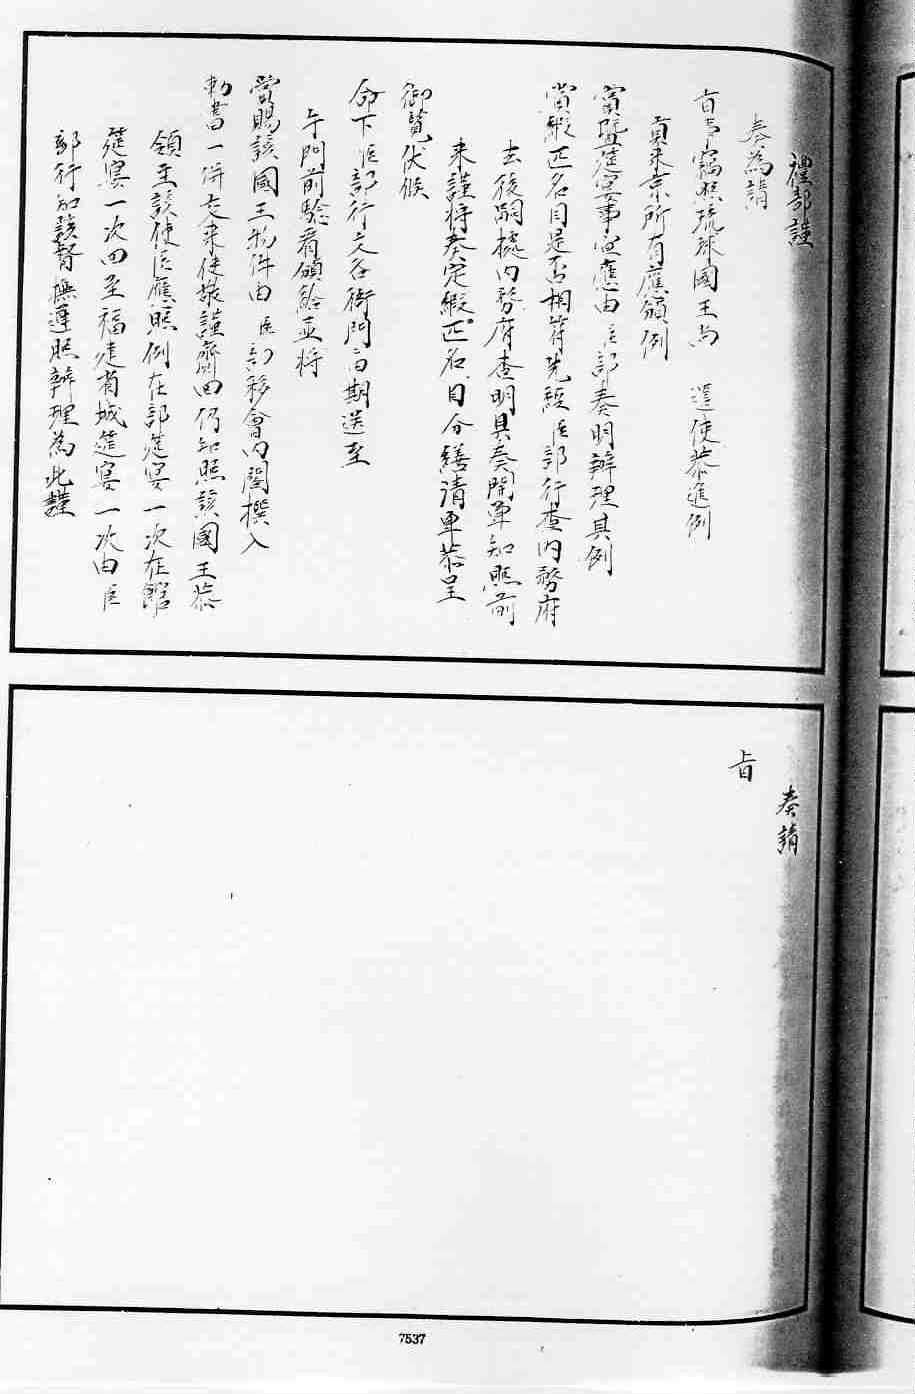 禮部謹
奏為請
旨事竊照琉球國王尚 遣使恭進例
貢來京所有應領例
賞暨筵宴事宜應由臣部奏明辦理其例
賞緞匹名目是否相符先經臣部行查內務府
去後嗣據內務府查明具奏開單知照前
來謹將奏定緞匹名目分繕清單恭呈
御覽伏候
命下臣部行文各衙門訂期送至
午門前驗看頒給並將
賞賜該國王物件由臣部移會內閣撰入
勅書一併交來使敬謹齎回仍知照該國王恭
領至該使臣應照例在部筵宴一次在館
筵宴一次回至福建省城筵宴一次由臣
部行知該督撫遵照辦理為此謹
奏請
旨
7537